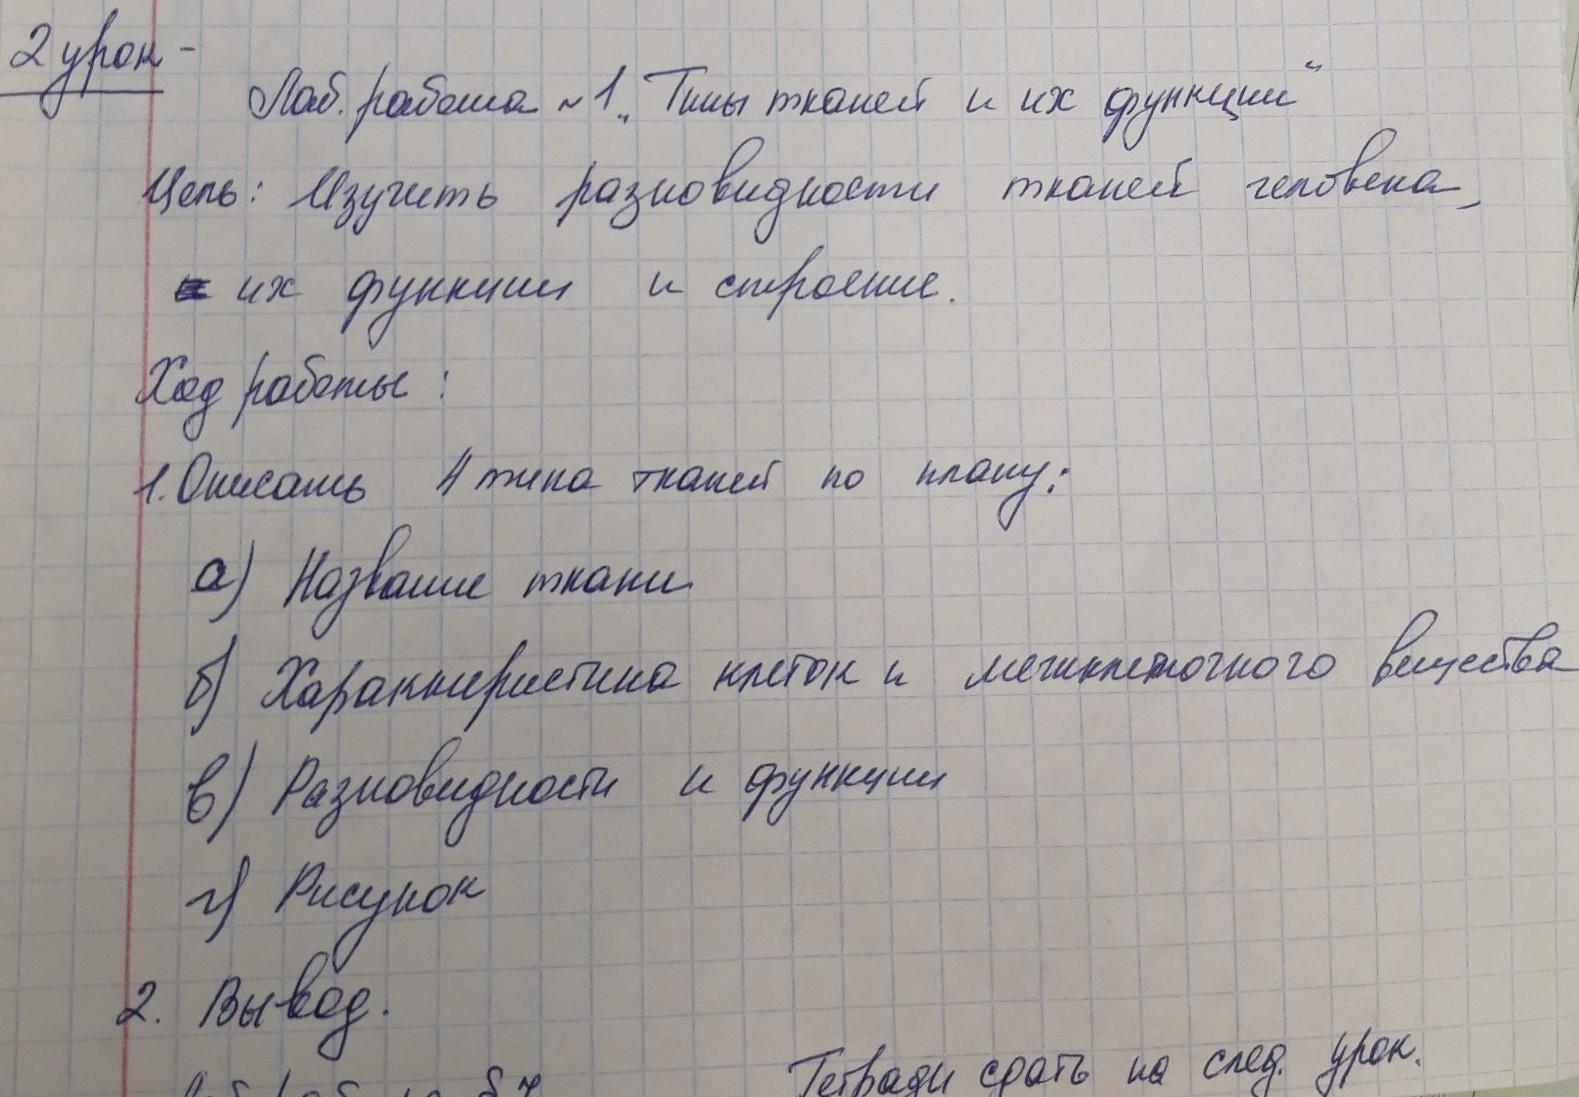 2 урок -
Лаб. работа ~ 1 „Типы тканей и их функции“
Цель: Изучить разновидности тканей человека,
их функции и строение.
Ход работы:
1. Описать 4 типа тканей по плану:
а) Название ткани
б) Характеристика клеток и межклеточного вещества
в) Разновидности и функции
г) Рисунок
2. Вывод.
Тетради сдать на след. урок.